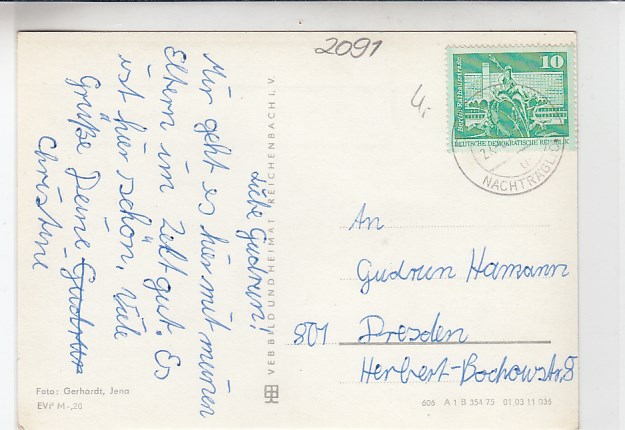 2091
4,-
10
Berlin, Rathausstraße
DEUTSCHE DEMOKRATISCHE REPUBLIK
NACHTRÄGLICH
Liebe Gudrun!
Mir geht es hier mit meinen
Eltern im Zelt gut. Es
ist hier schön. Viele
Grüße Deine Gudrun
Christine
VEB BILD UND HEIMAT REICHENBACH I. V.
An
Gudrun Hamann
801 Dresden
Herbert-Bochowstr. 8
Foto: Gerhardt, Jena
EVP M -,20
606 A 1 B 354 75 01 03 11 036